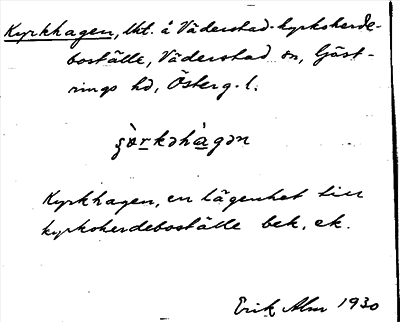 Kyrkhagen, lht. å Väderstad kyrkoherde-
boställe, Väderstad sn, Göst-
rings hd, Österg. l.
Kyrkhagen, en lägenhet till
kyrkoherdeboställe bek. ek.
Erik Alm 1930